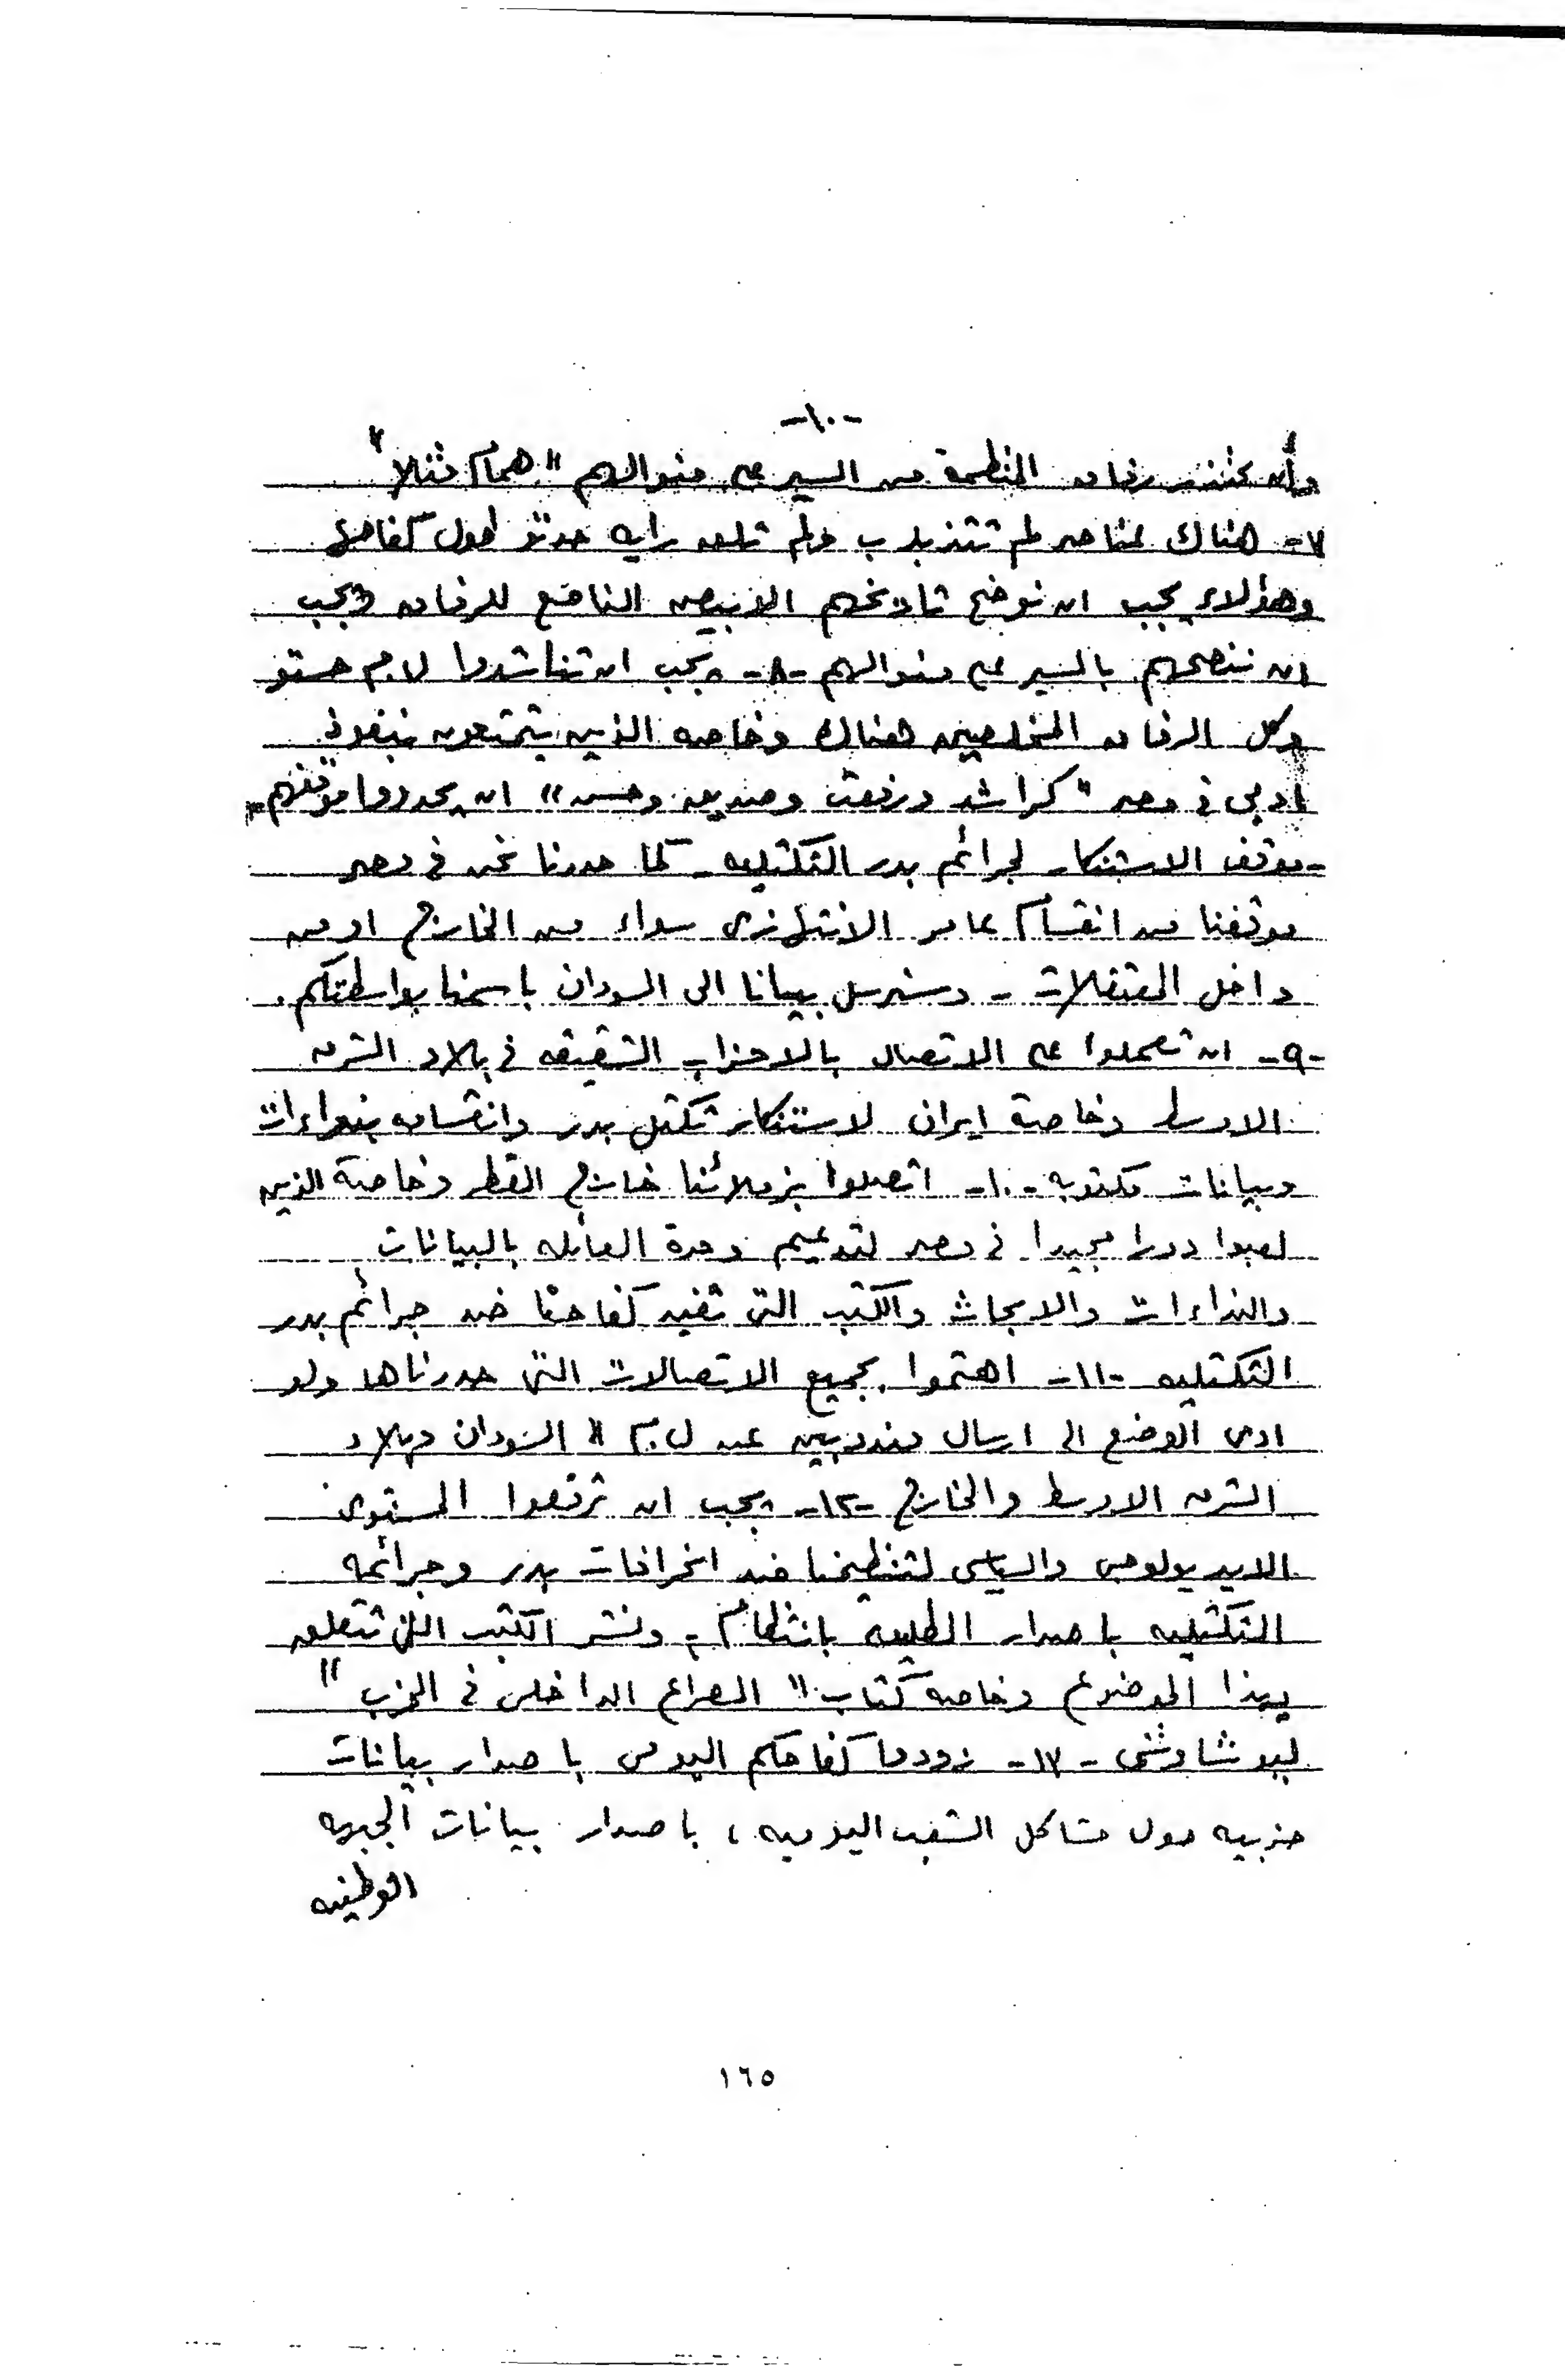 -١٠-
وأن نحذر رفاق المنظمة من السير على منوالهم "همام مثلا"
٧- هناك عناصر لم تتذبذب ولم تلعن راية حدتو طول كفاحها
وهؤلاء يجب ان نوضح تاريخهم الابيض الناصع للرفاق ويجب
ان ننصحهم بالسير على منوالهم -٨- يجب ان تناشدوا ل.م حستو
وكل الرفاق المخلصين هناك وخاصه الذين يتمتعون بنفوذ
ادبى فى مصر "كراشد ورفعت وصديق وحسن" ان يحددوا موقفهم
-موقف الاستنكار لجرائم بدر التكتليه - كما حددنا نحن فى مصر
موقفنا من انقسام عامر الانتهازى سواء من الخارج او من
داخل المعتقلات - وسنرسل بيانا الى السودان باسمنا بواسطتكم.
-٩- ان تعملوا على الاتصال بالاحزاب الشقيقه فى بلاد الشرق
الاوسط وخاصة ايران لاستنكار تكتل بدر وانقسامه بنداءات
وبيانات مكتوبه -١٠- اتصلوا بزملائنا خارج القطر وخاصة الذين
لعبوا دورا مجيدا فى مصر لتدعيم وحدة العائله بالبيانات
والنداءات والابحاث والكتب التى تفيد كفاحنا ضد جرائم بدر
التكتليه -١١- اهتموا بجميع الاتصالات التى حددناها ولو
ادى الوضع الى ارسال مندوبين عن ل.م " السودان وبلاد
الشرق الاوسط والخارج -١٢- يجب ان ترفعوا المستوى
الايديولوجى والسياسى لتنظيمنا ضد انحرافات بدر وجرائمه
التكتليه باصدار الطليعة بانتظام، ونشر الكتب التى تتعلق
بهذا الموضوع وخاصه كتاب " الصراع الداخلى فى الحزب "
ليو شاوتشى -١٣- زودوا كفاحكم اليومى باصدار بيانات
حزبيه حول مشاكل الشعب اليوميه ، باصدار بيانات الجبهه
الوطنيه
١٦٥